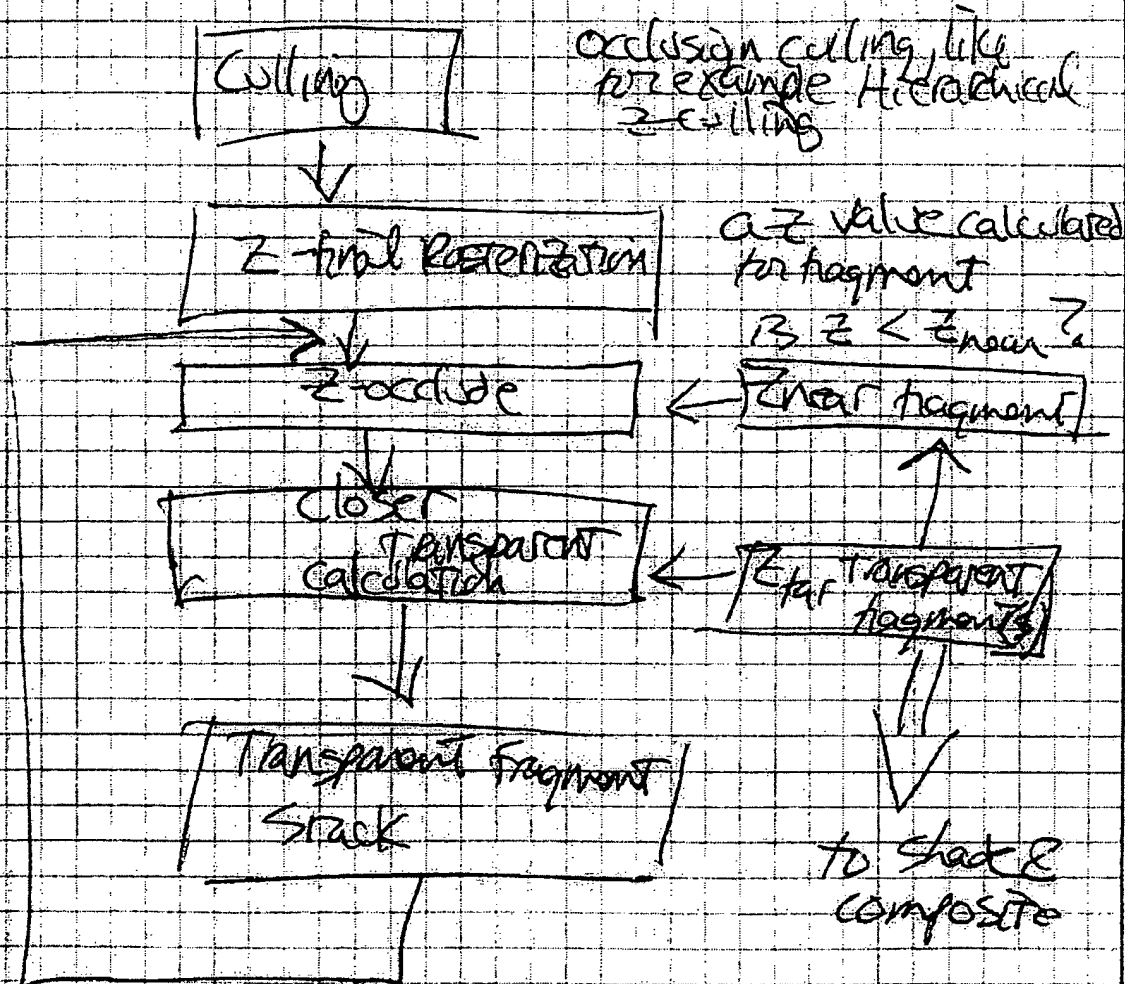 Culling
Occlusion culling, like
for example Hierarchical
Z-culling
Z-final Rasterization
a z value calculated
for fragment
is Z < Znear?
Z-occlude
Znear fragment
Closer
Transparent
Calculation
Zfar Transparent
fragment(s)
Transparent Fragment
Stack
to shade &
composite